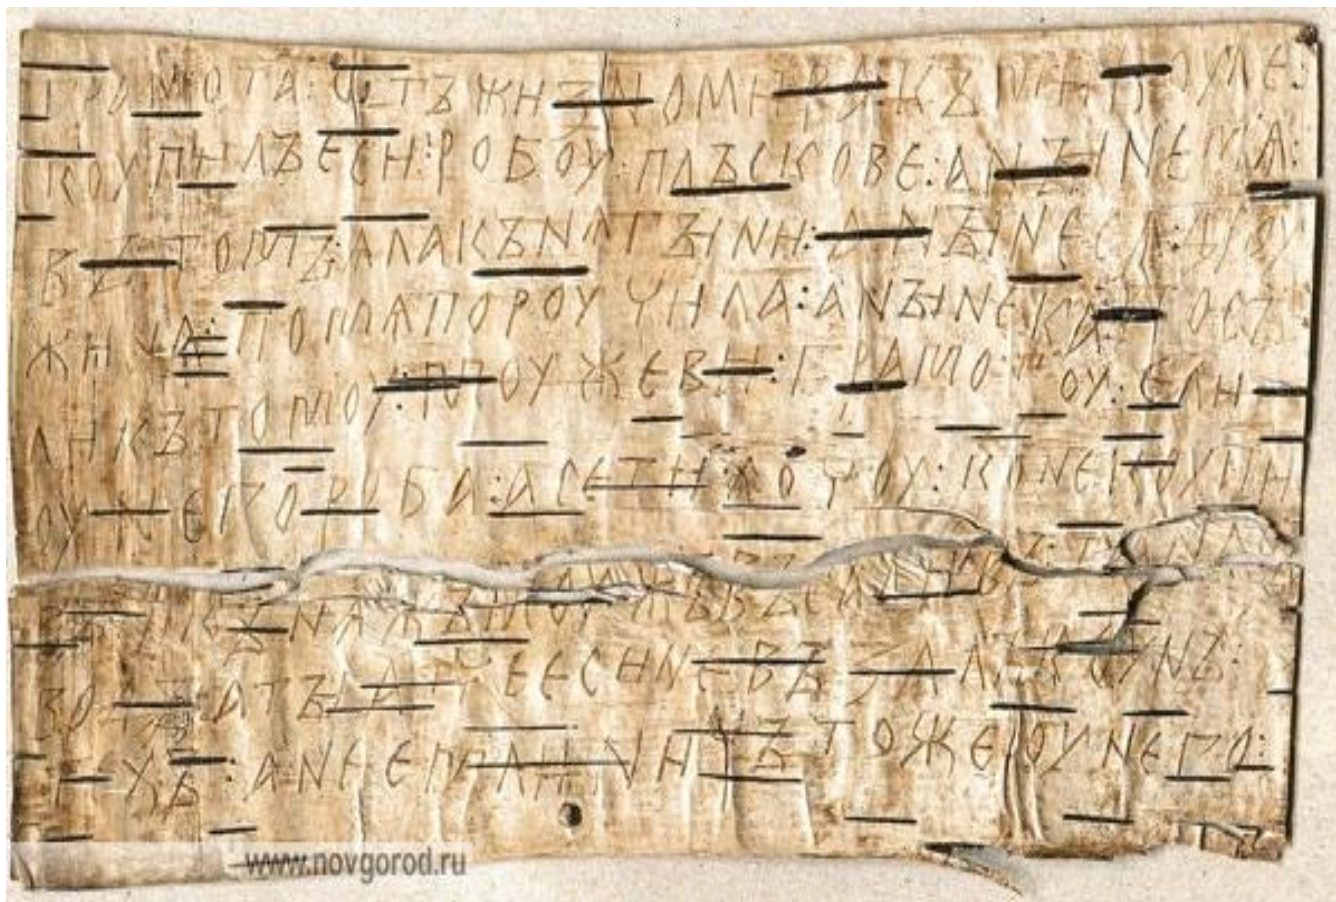 грамота : ѡтъ жизномира : къ микоуле :
коупилъ еси : робоу : плъскове : а нꙑне мѧ :
въ томъ : ѧла кънѧгꙑни : а нꙑне сѧ дроу
жина : по мѧ пороучила : а нꙑне ка : посъ
ли къ томоу : моужеви : грамотоу : ели
оу него роба : а се ти хочоу : коне коупи
въ : и кънѧжъ моужъ въсадивъ : та на съ
водꙑ : а тꙑ атче еси не възалъ коунъ :
техъ : а не емли : ничъто же оу него :
www.novgorod.ru